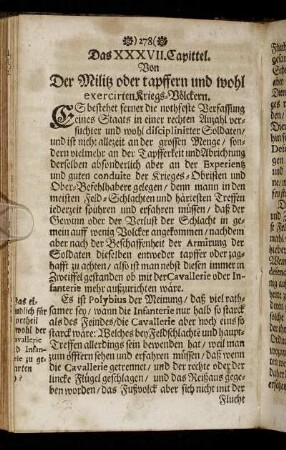 )278(
Das XXXVII. Capittel.
Von
Der Militz oder tapffern und wohl
exercirten Kriegs-Völckern.
ES bestehet ferner die nothfeste Verfassung
eines Staats in einer rechten Anzahl ver-
suchter und wohl disciplinirter Soldaten/
und ist mehr allezeit an der grossen Menge/ son-
dern vielmehr an der Tapfferkeit und Abrichtung
derselben absonderlich aber an der Experientz
und guten conduite der Krieges-Obristen und
Ober-Befehlhabere gelegen/ denn mann in den
meisten Feld-Schlachten und härtesten Treffen
iederzeit spühren und erfahren müssen/ daß der
Gewinn oder der Verlust der Schlacht in ge-
mein auff wenig Volcker angekommen/ nachdem
aber nach der Beschaffenheit der Armirung der
Soldaten dieselben entweder tapffer oder zag-
hafft zu achten/ also ist man nebst diesen immer in
Zweiffel gestanden ob mit der Cavallerie oder In-
fanterie mehr außzurichten wäre.
Es ist Polybius der Meinung/ daß viel rath-
samer sey/ wann die Infanterie nur halb so starck
als des Feindes/ die Cavallerie aber noch eins so
starck wäre: Welches bey Feldschlacht und haupt-
Treffen allerdings sein bewenden hat/ weil man
zum öfftern sehen und erfahren müssen/ daß wenn
die Cavallerie getrennet/ und der rechte oder der
lincke Flügel geschlagen/ und das Reißaus gege-
ben worden/ das Fußvolck aber sich nicht mit der
Flucht